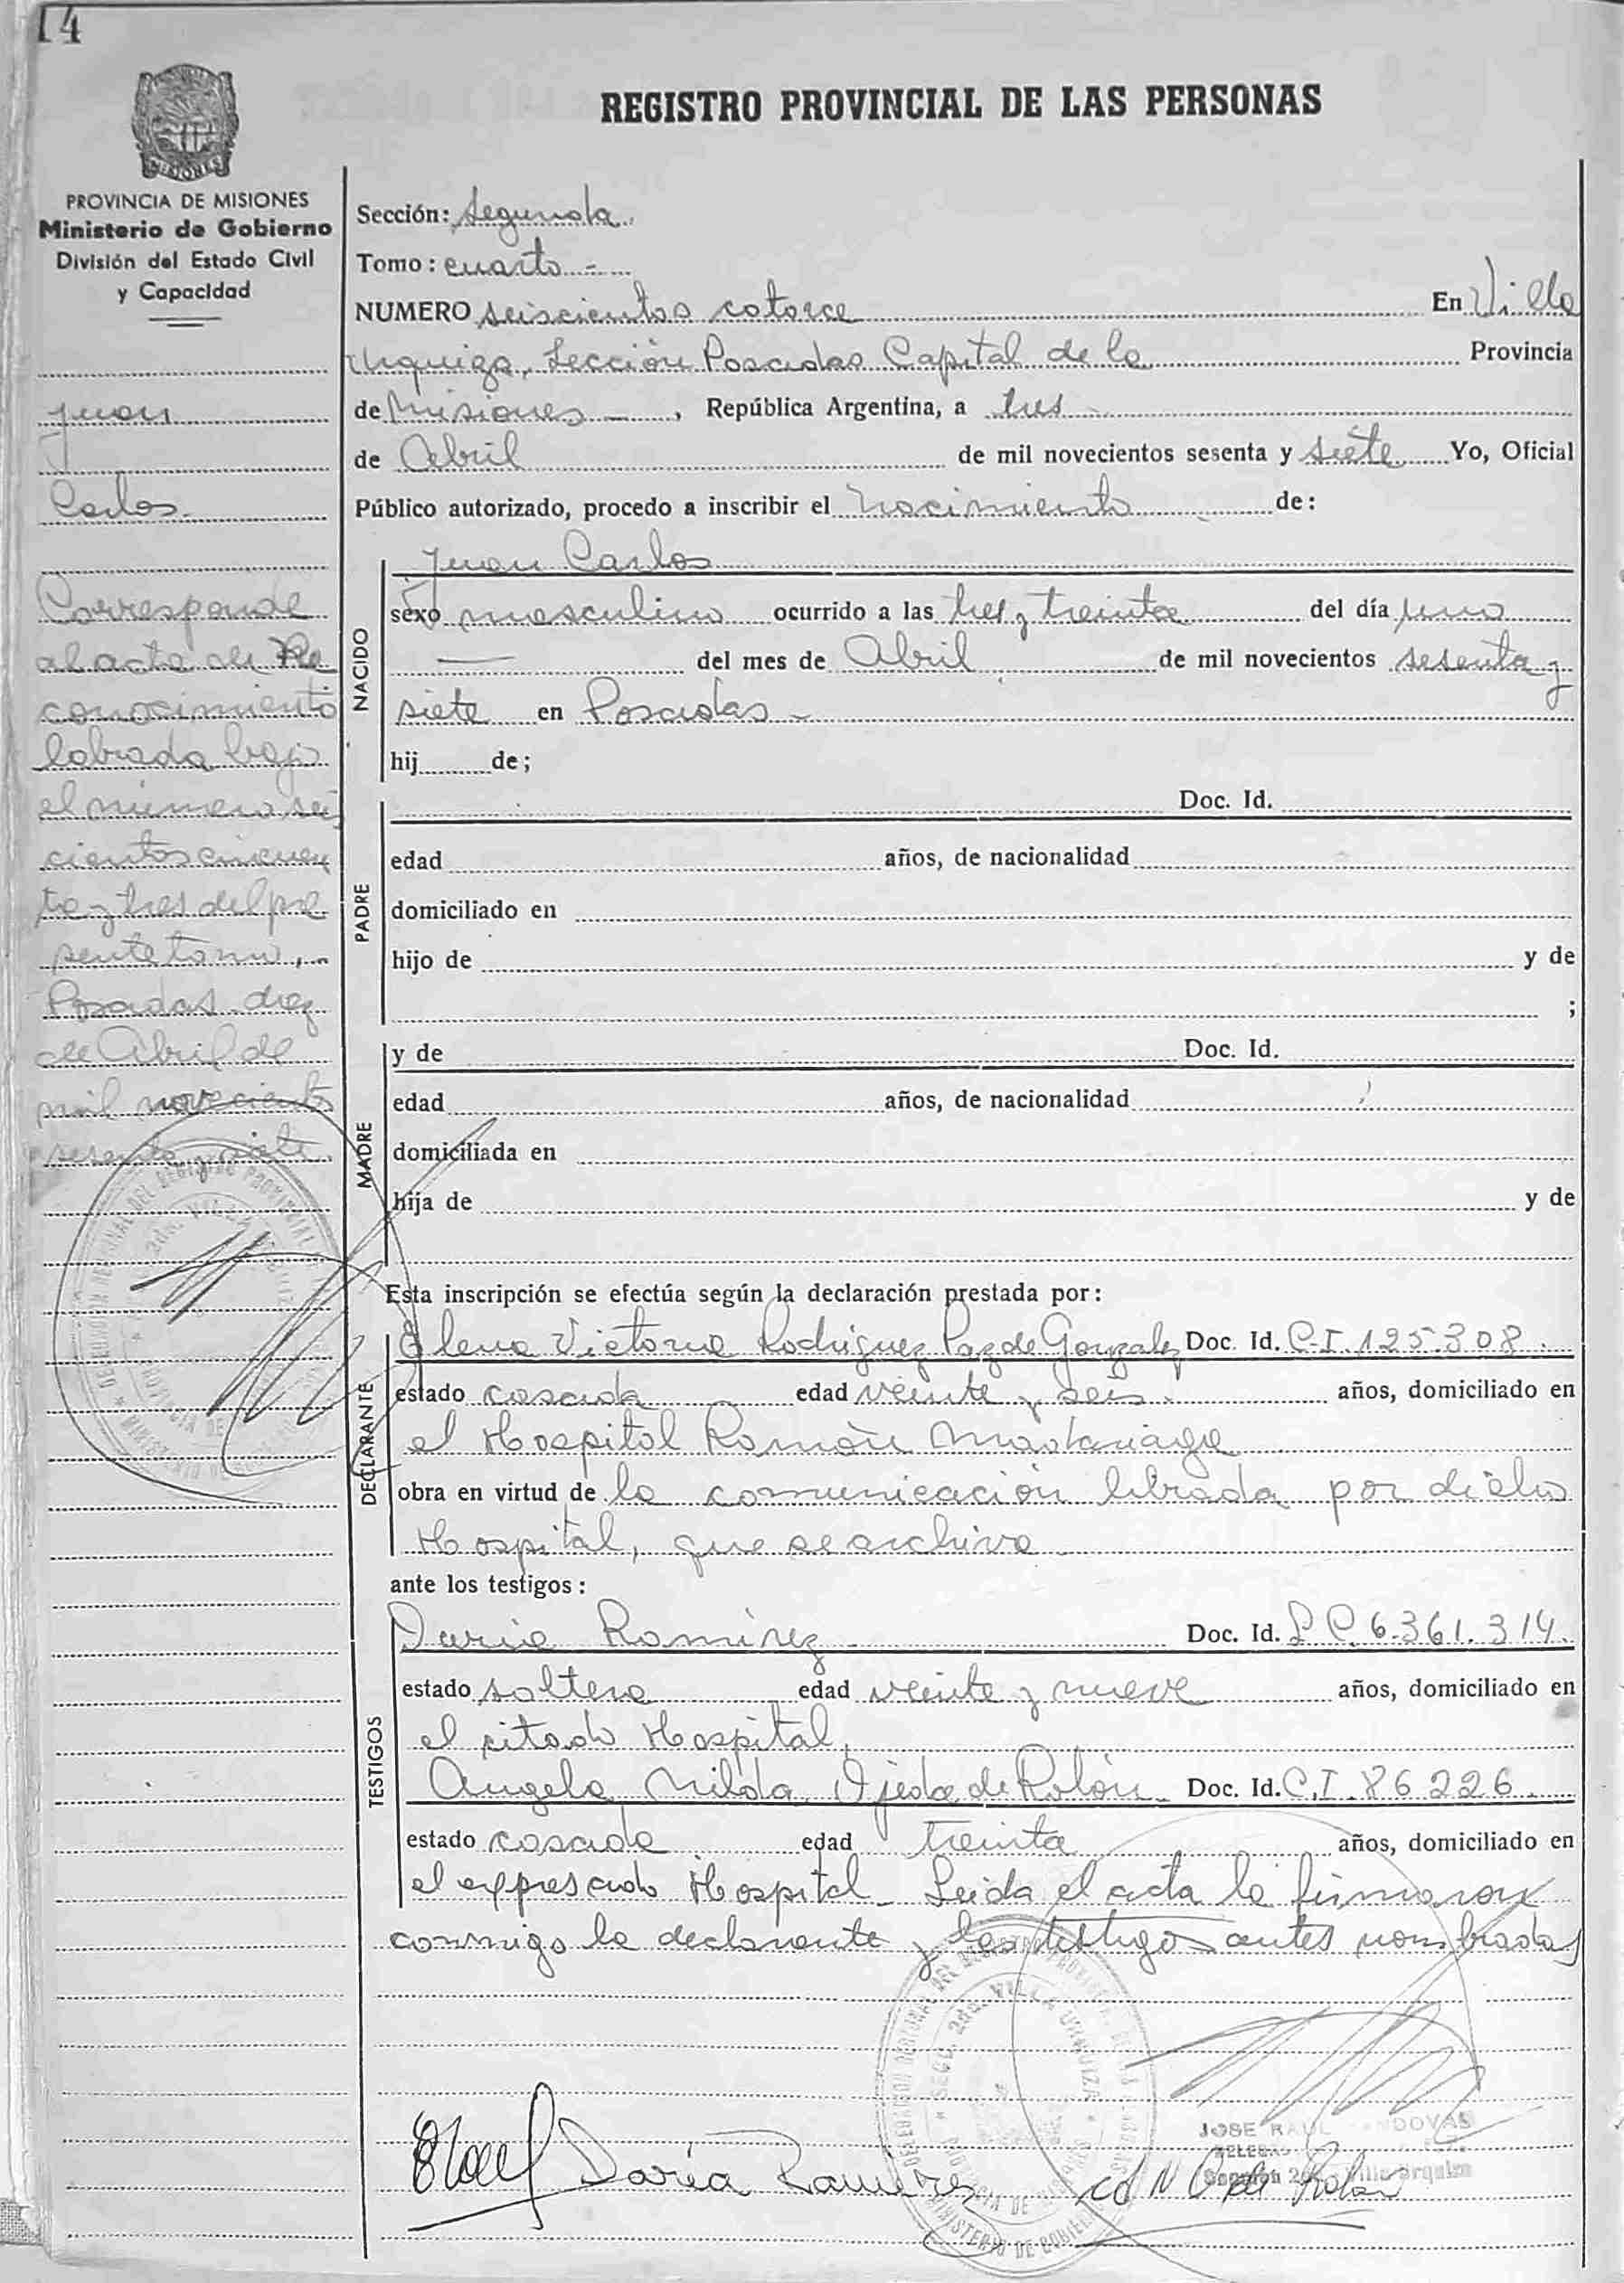 14
REGISTRO PROVINCIAL DE LAS PERSONAS
MISIONES
PROVINCIA DE MISIONES
Ministerio de Gobierno
División del Estado Civil
y Capacidad
Juan
Carlos
Corresponde
al acta de Re
conocimiento
labrada bajo
el número seis
cientos cincuen
ta y tres del pre
sente tomo,.-
Posadas diez
de Abril de
mil novecientos
sesenta y siete.
Sección: Segunda.
Tomo: cuarto.-
NUMERO seiscientos catorce En Villa
Urquiza, Sección Posadas Capital de la Provincia
de Misiones, República Argentina, a tres
de Abril de mil novecientos sesenta y siete Yo, Oficial
Público autorizado, procedo a inscribir el nacimiento de:
Juan Carlos
NACIDO
sexo masculino ocurrido a las tres y treinta del día uno
del mes de Abril de mil novecientos sesenta y
siete en Posadas.-
hij de;
PADRE
Doc. Id.
edad años, de nacionalidad
domiciliado en
hijo de y de
;
MADRE
y de Doc. Id.
edad años, de nacionalidad
domiciliada en
hija de y de
Esta inscripción se efectúa según la declaración prestada por:
DECLARANTE
Elena Victoria Rodriguez Paz de Gonzalez Doc. Id. C.I. 125.308.
estado casada edad veinte y seis.- años, domiciliado en
el Hospital Ramón Madariaga
obra en virtud de la comunicación librada por dicho
Hospital, que se archiva
ante los testigos:
TESTIGOS
Daria Ramirez Doc. Id. L.C. 6.361.314.
estado soltera edad veinte y nueve años, domiciliado en
el citado Hospital,
Angela Nilda Ojeda de Rolón Doc. Id. C.I. 86.226.
estado casada edad treinta años, domiciliado en
el expresado Hospital.- Leida el acta la firmaron
conmigo la declarante y las testigos antes nombradas
Daria Ramires
de Rolon
JOSE RAUL
Villa Urquiza